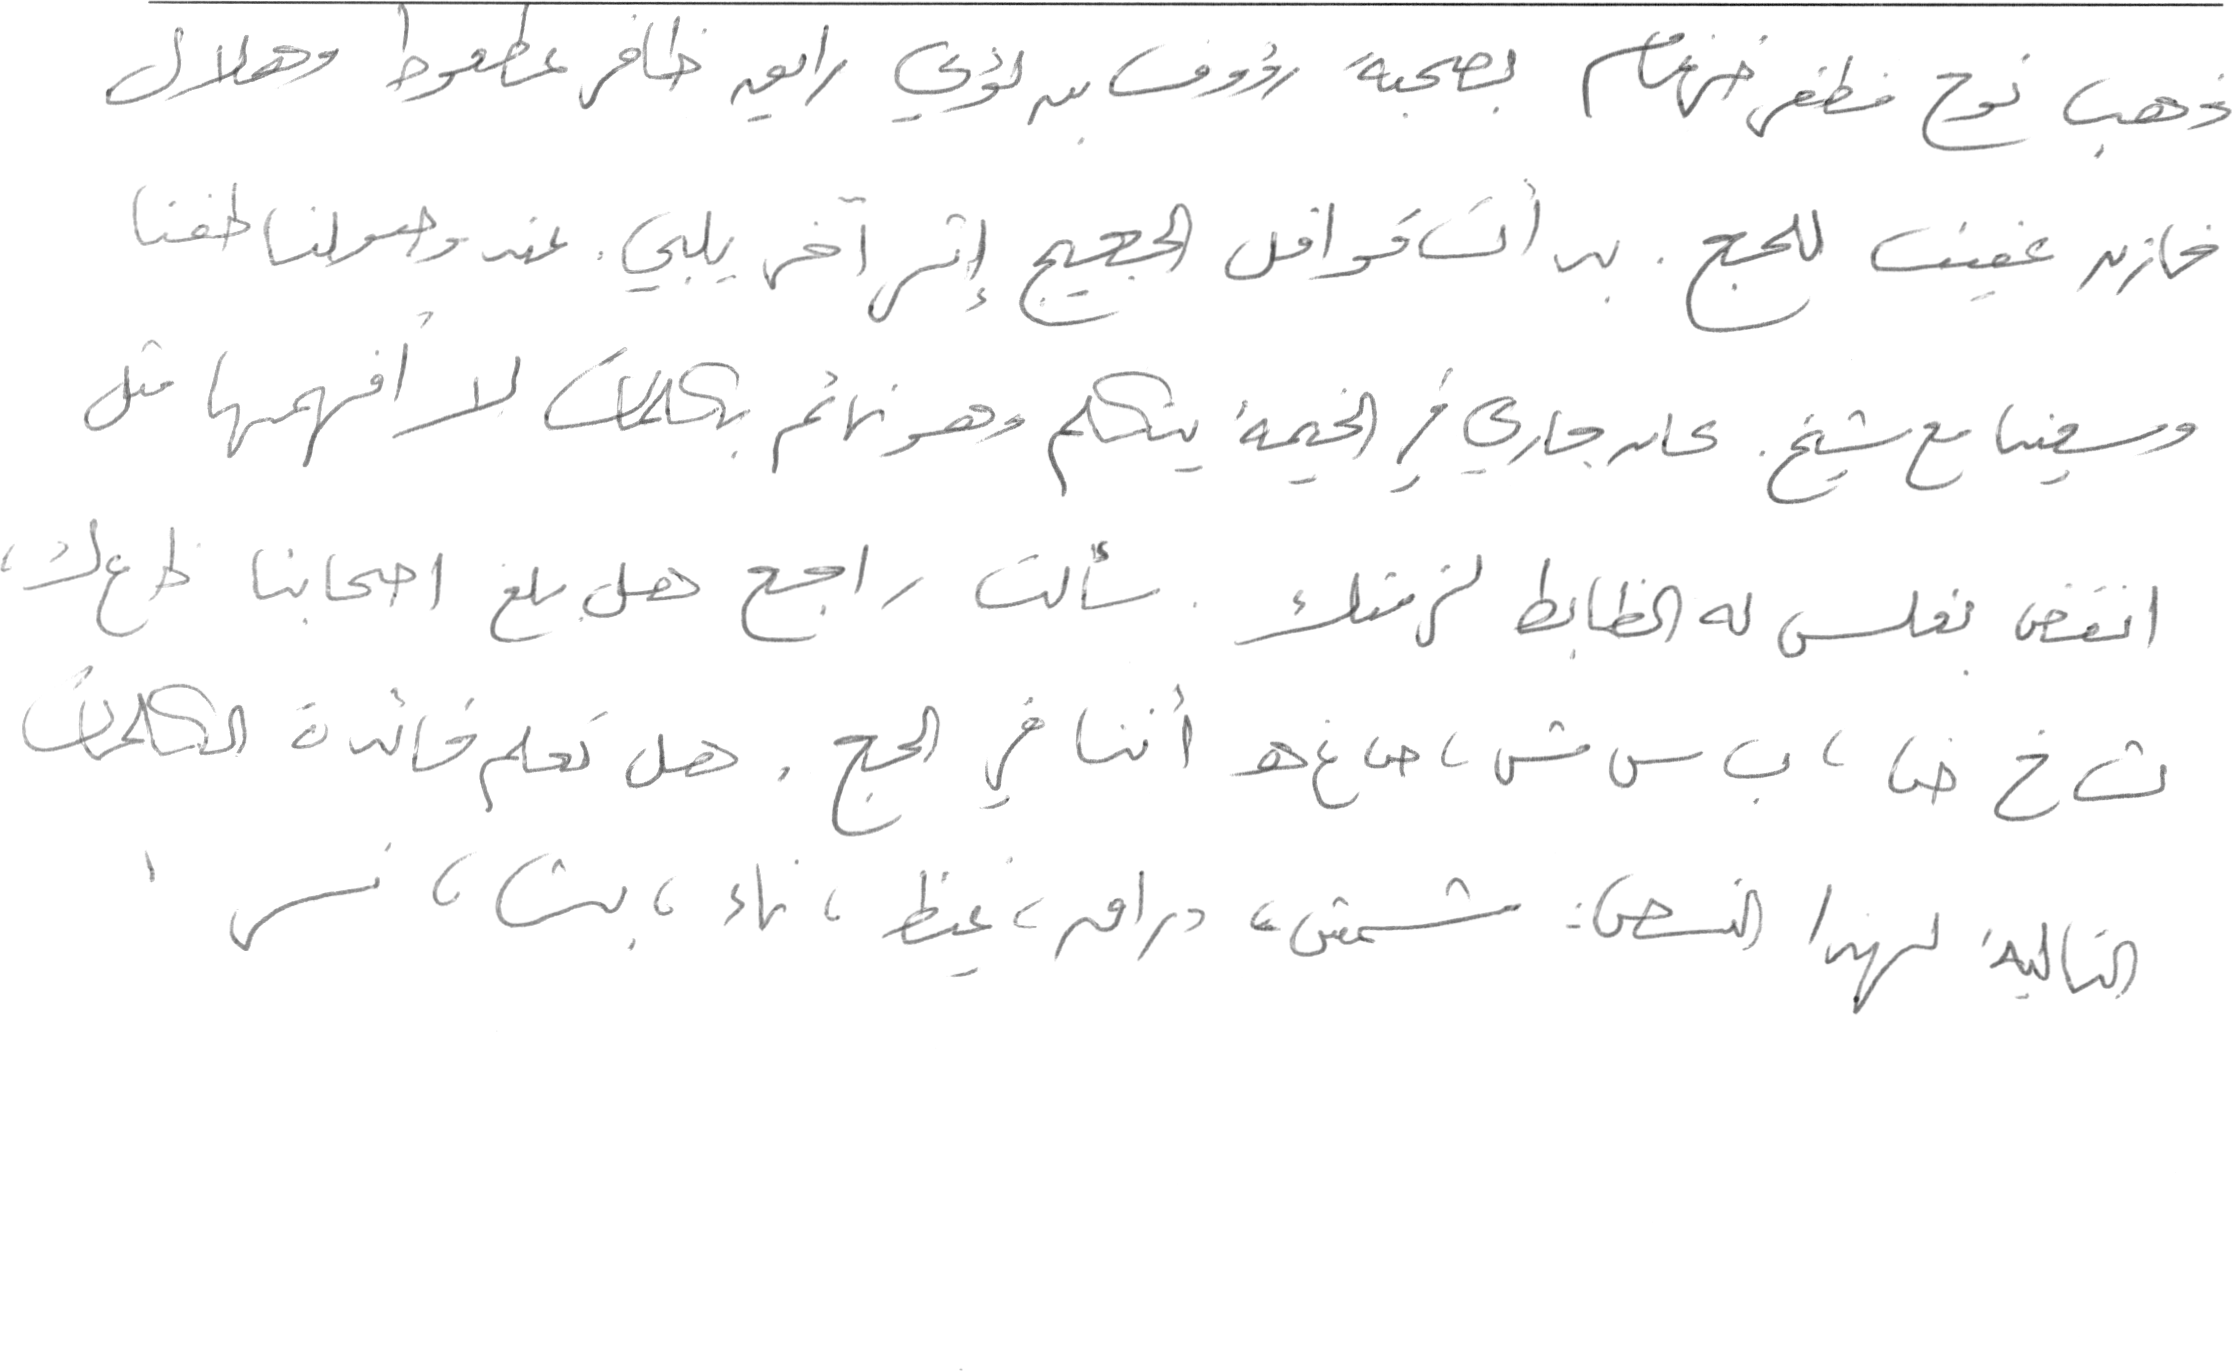 ذهب نوح مظفر ضرغام بصحبة رؤوف بن لؤي رامعه ظافر عطعوط وهلال
خازن عفيف للحج. بدأت قوافل الحجيج إثر آخر يلبي. عند وصولنا طفنا
وسعينا مع شيخ. كان جاري في الخيمة يتكلم وهو نائم بكلمات لا أفهمها مثل
انتفض بغلس له الظابط لزمتك. سألت راجح هل بلغ اصحابنا ظ ع ك،
ث خ ض، ب س ش، ص غ هـ أننا في الحج. هل تعلم فائدة الكلمات
التالية لهذا النص: شمش، دراق، غيظ، ناء، بث، نس ا